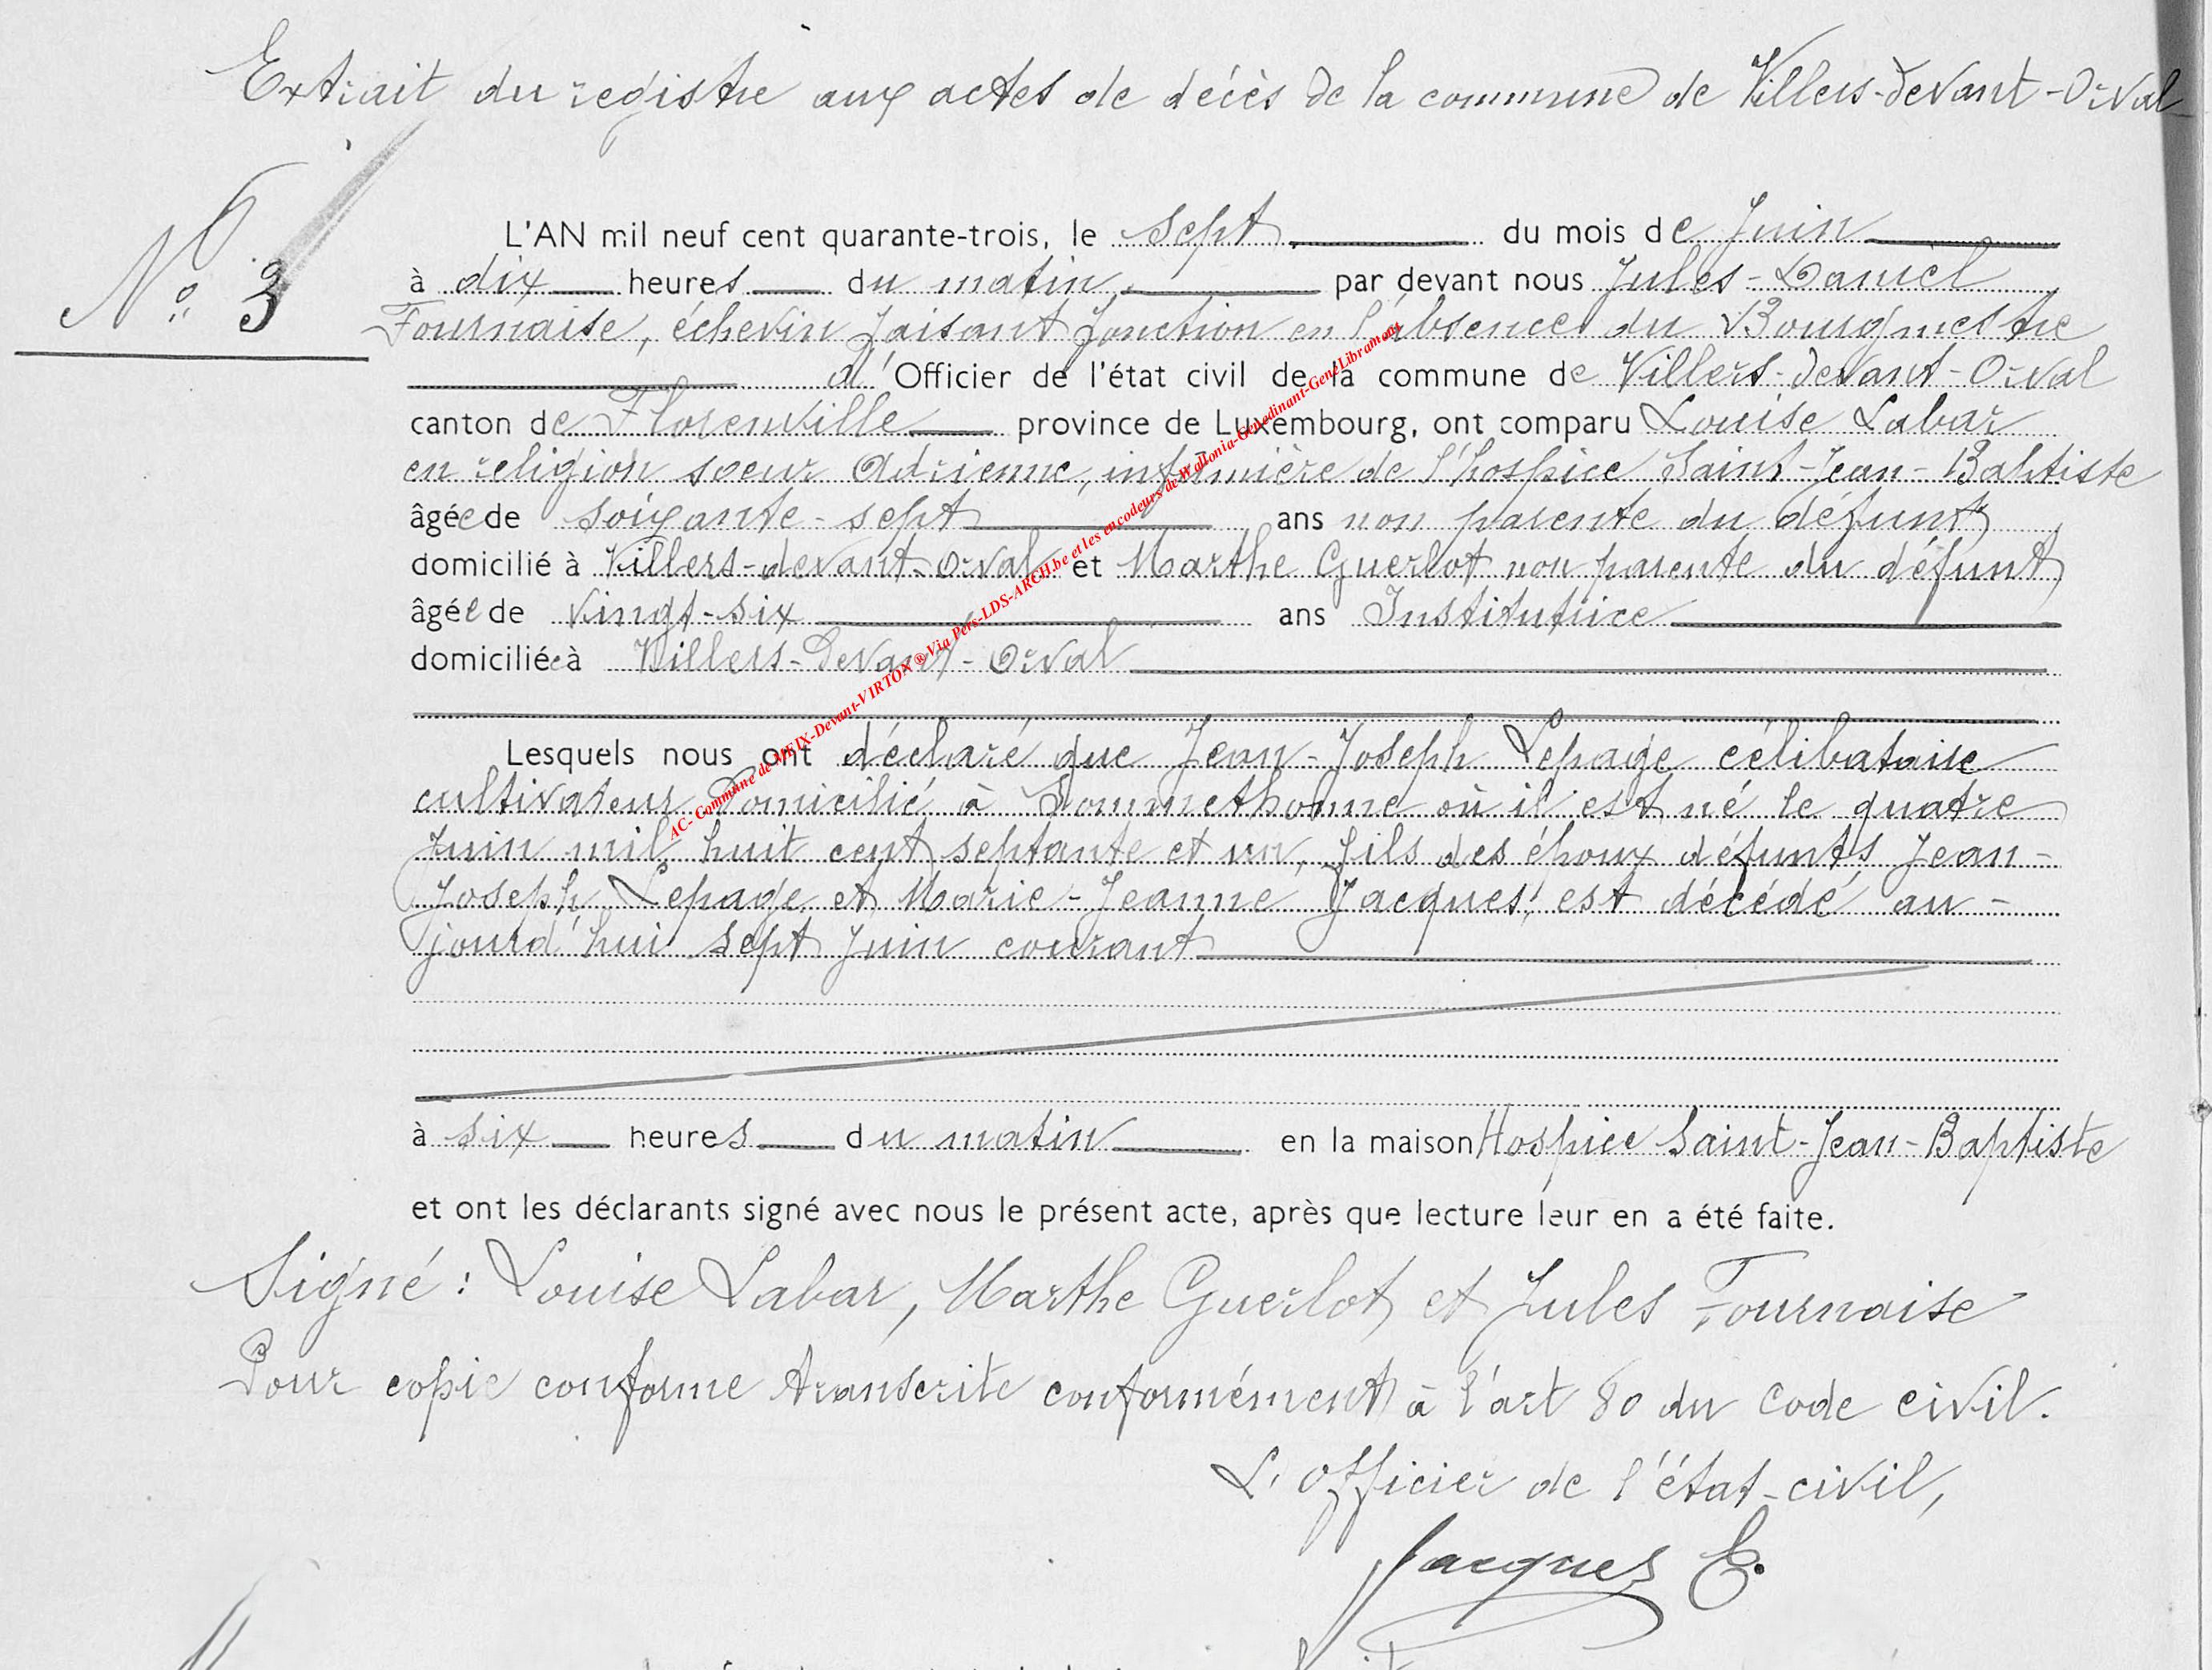 Extrait du registre aux actes de décès de la commune de Villers-devant-Orval
N° 3
L'AN mil neuf cent quarante-trois, le sept du mois de Juin
à dix heures du matin, par devant nous Jules-Daniel
Fournaise, échevin faisant fonction en l'absence du Bourgmestre
d'Officier de l'état civil de la commune de Villers-devant-Orval
canton de Florenville province de Luxembourg, ont comparu Louise Labar
en religion soeur Adrienne, infirmière de l'hospice Saint-Jean-Baptiste
âgée de soixante-sept ans non parente du défunt
domicilié à Villers-devant-Orval et Marthe Guerlot non parente du défunt
âgée de vingt-six ans Institutrice
domiciliée à Villers-Devant-Orval
Lesquels nous ont déclaré que Jean-Joseph Lepage célibataire
cultivateur domicilié à Sommethonne où il est né le quatre
Juin mil huit cent septante et un, fils des époux défunts Jean-
Joseph Lepage et Marie-Jeanne Jacques, est décédé au-
jourd'hui sept Juin courant
à six heures du matin en la maison Hospice Saint-Jean-Baptiste
et ont les déclarants signé avec nous le présent acte, après que lecture leur en a été faite.
Signé : Louise Labar, Marthe Guerlot et Jules Fournaise
Pour copie conforme transcrite conformément à l'art 80 du Code civil.
L'officier de l'état-civil,
Jacques E.
AC- Commune de MEIX-Devant-VIRTON ® Via Pers-LDS-ARCH.be et les encodeurs de Wallonia-Genedinant-GeneLibramont